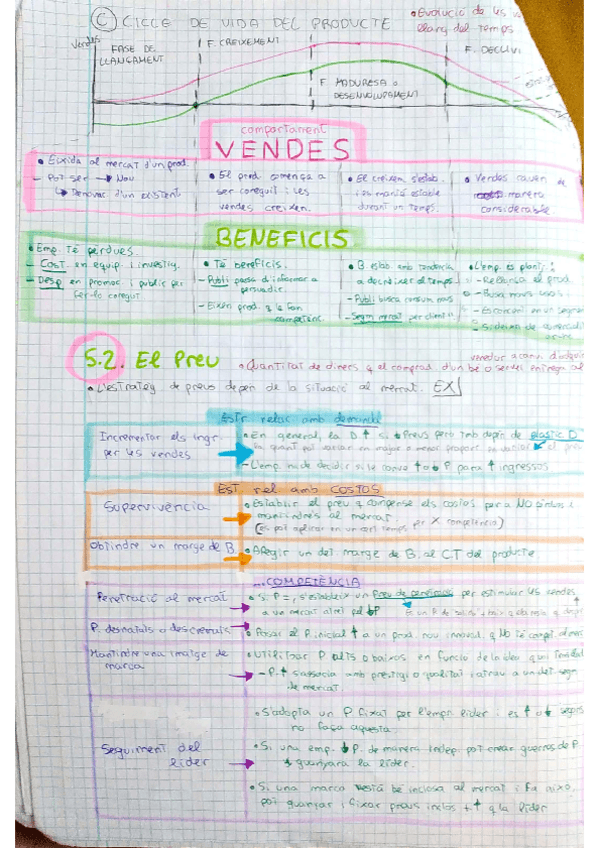 C CICLE DE VIDA DEL PRODUCTE
• Evolució de les
llarg del temps
Vendes
FASE DE LLANÇAMENT
F. CREIXEMENT
F. MADURESA o DESENVOLUPAMENT
F. DECLIVI
comportament
VENDES
• Eixida al mercat d'un prod.
- Pot ser → Nou
↳ Renovac d'un existent
• El prod. comença a
ser conegut i les
vendes creixen.
• El creixem. s'estab.
i es manté estable
durant un temps.
• Vendes cauen de
manera
considerable
BENEFICIS
• Emp. té pèrdues.
- Cost en equip. i investig.
- Desp en promoc i public per
fer-lo conegut.
• Té beneficis.
- Publi passa d'informar a
persuadir
- Eixen prod. q le fan
competènc.
• B estab amb tendència
a decréixer al temps
- Publi busca consum més
- Segm mercat per client
• L'emp. es planteja:
- Rellançar el prod.
- Busca nous usos
- Es concent en un segment
- Si deixen de comercial
5.2. El Preu
• Quantitat de diners q el comprad. d'un bé o servei entrega al
venedor a canvi d'adquirir
• L'estratèg de preus depén de la situació al mercat. EX
Estr relac amb demanda
Incrementar els ingr.
per les vendes
• En general, la D ↑ si ↓ Preus però tmb depén de elastic D
- L'emp. ha de decidir si le convé ↑ o ↓ P para ↑ ingressos
Est rel amb COSTOS
Supervivència
• Establir el preu q compense els costos per a NO
mantindre's al mercat
(es pot aplicar en un cert temps per X competència)
Obtindre un marge de B.
• Afegir un det marge de B. al CT del producte
...COMPETÈNCIA
Penetració al mercat
• Si P=, s'estableix un Preu de penetració per estimular les vendes
a un mercat atret pel ↓P
P. desnatats o descremats
• Posar el P. inicial ↑ a un prod. nou innovad. q NO té compet
Mantindre una imatge de
marca
• Utilitzar P alts o baixos en funció de la idea
- P. ↑ s'associa amb prestigi o qualitat i atrau a un det segm
de mercat
Seguiment del
líder
• S'adopta un P fixat per l'empr. líder i es ↑ o ↓ segons
ho faça aquesta.
• Si una emp. ↓ P. de manera indep. pot crear guerres de P
i guanyarà la líder.
• Si una marca està bé inclosa al mercat i fa això,
pot guanyar i fixar preus inclòs +↑ q la líder